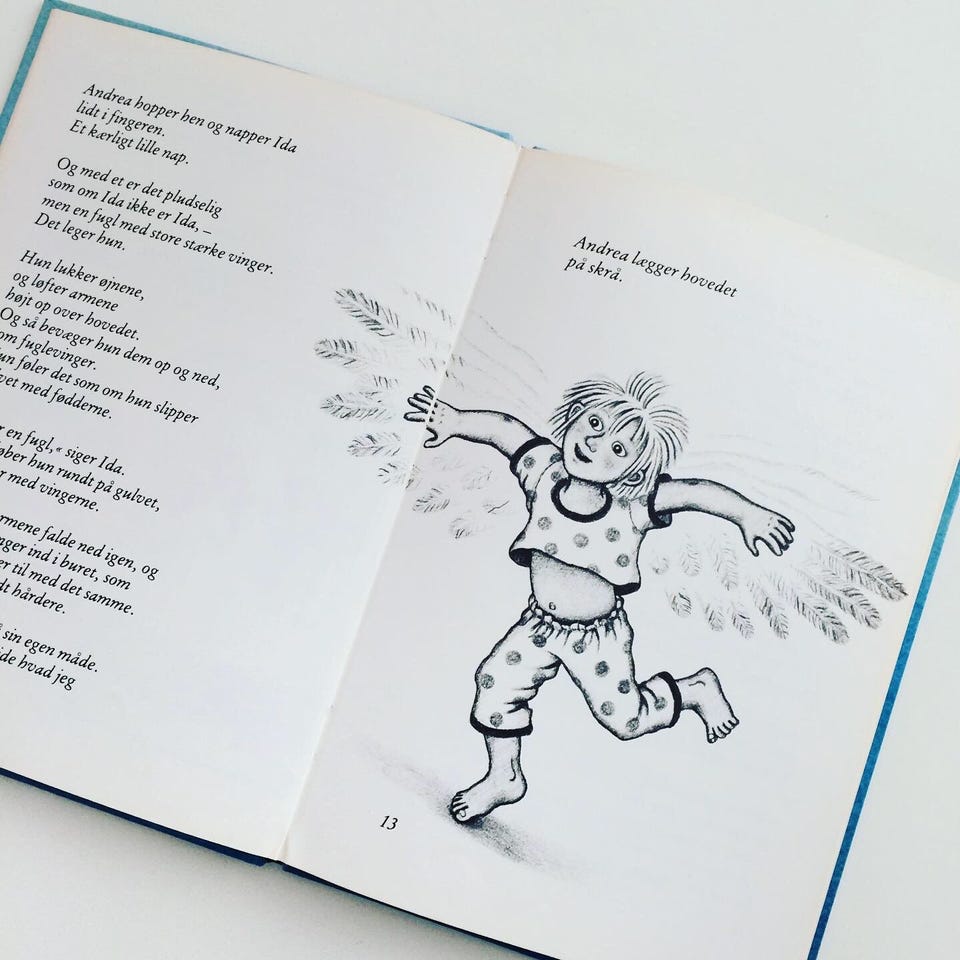 Andrea hopper hen og napper Ida
lidt i fingeren.
Et kærligt lille nap.
Og med et er det pludselig
som om Ida ikke er Ida, –
men en fugl med store stærke vinger.
Det leger hun.
Hun lukker øjnene,
og løfter armene
højt op over hovedet.
Og så bevæger hun dem op og ned,
om fuglevinger.
un føler det som om hun slipper
vet med fødderne.
r en fugl,« siger Ida.
øber hun rundt på gulvet,
r med vingerne.
rmene falde ned igen, og
nger ind i buret, som
er til med det samme.
dt hårdere.
å sin egen måde.
ide hvad jeg
Andrea lægger hovedet
på skrå.
13